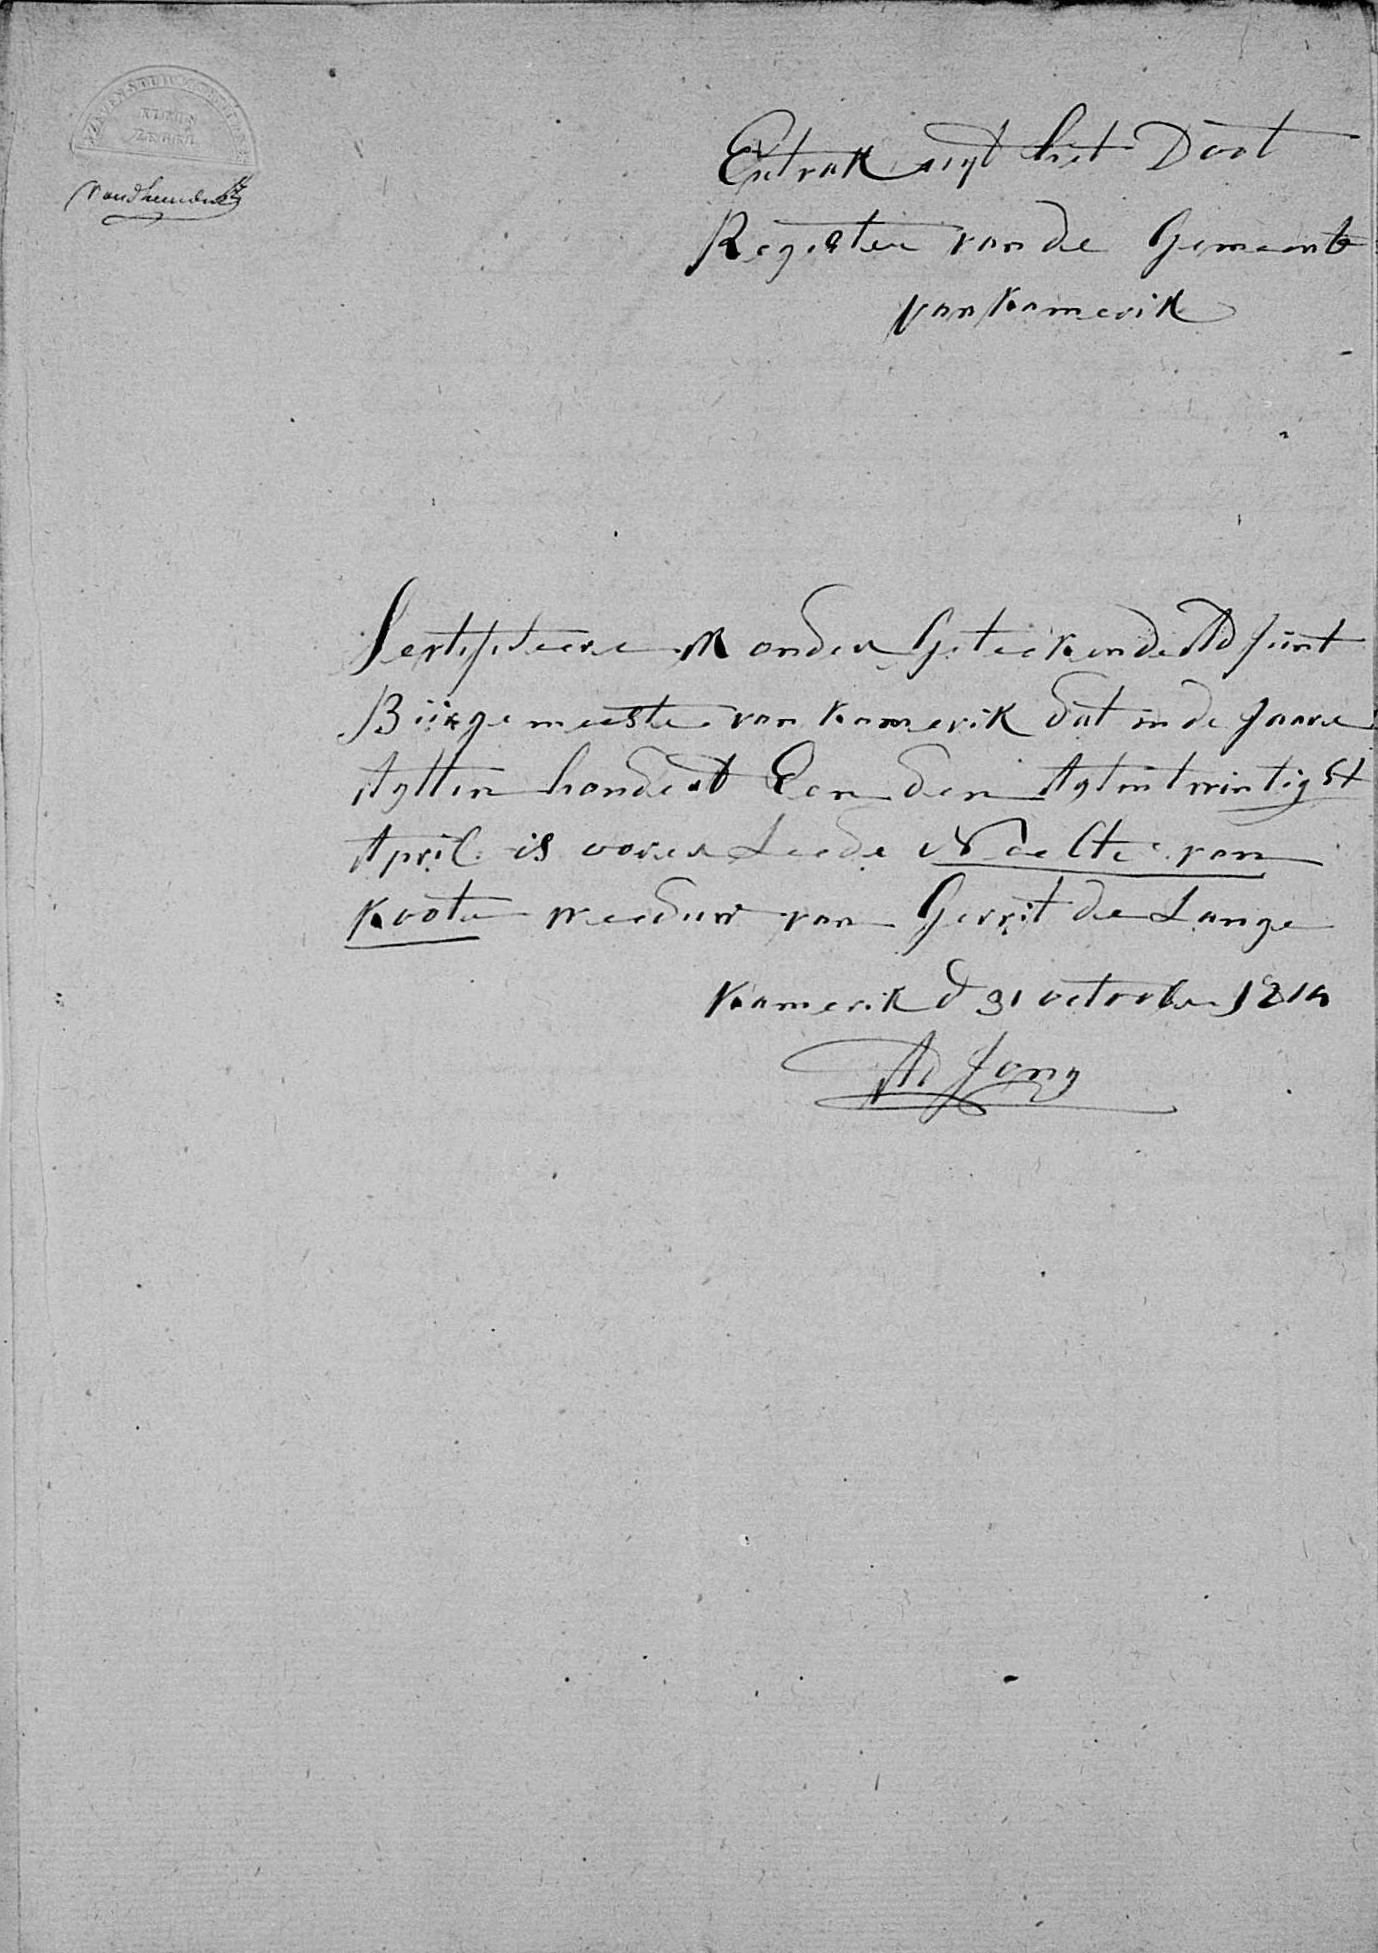 KLEIN
ZEGEL
Extrak uyt het Doot
Register van de Gemeente
van Kamerik
Sertifiseere ik onder Geteekende Adjünt
Bürgemeester van Kamerik dat in de Jaare
Agttin hondert Een den Agtintwintigst
April is overleede Neeltie van
Koote weeduw van Gerrit de Lange
Kamerik d 31 October 1814
AD Jong